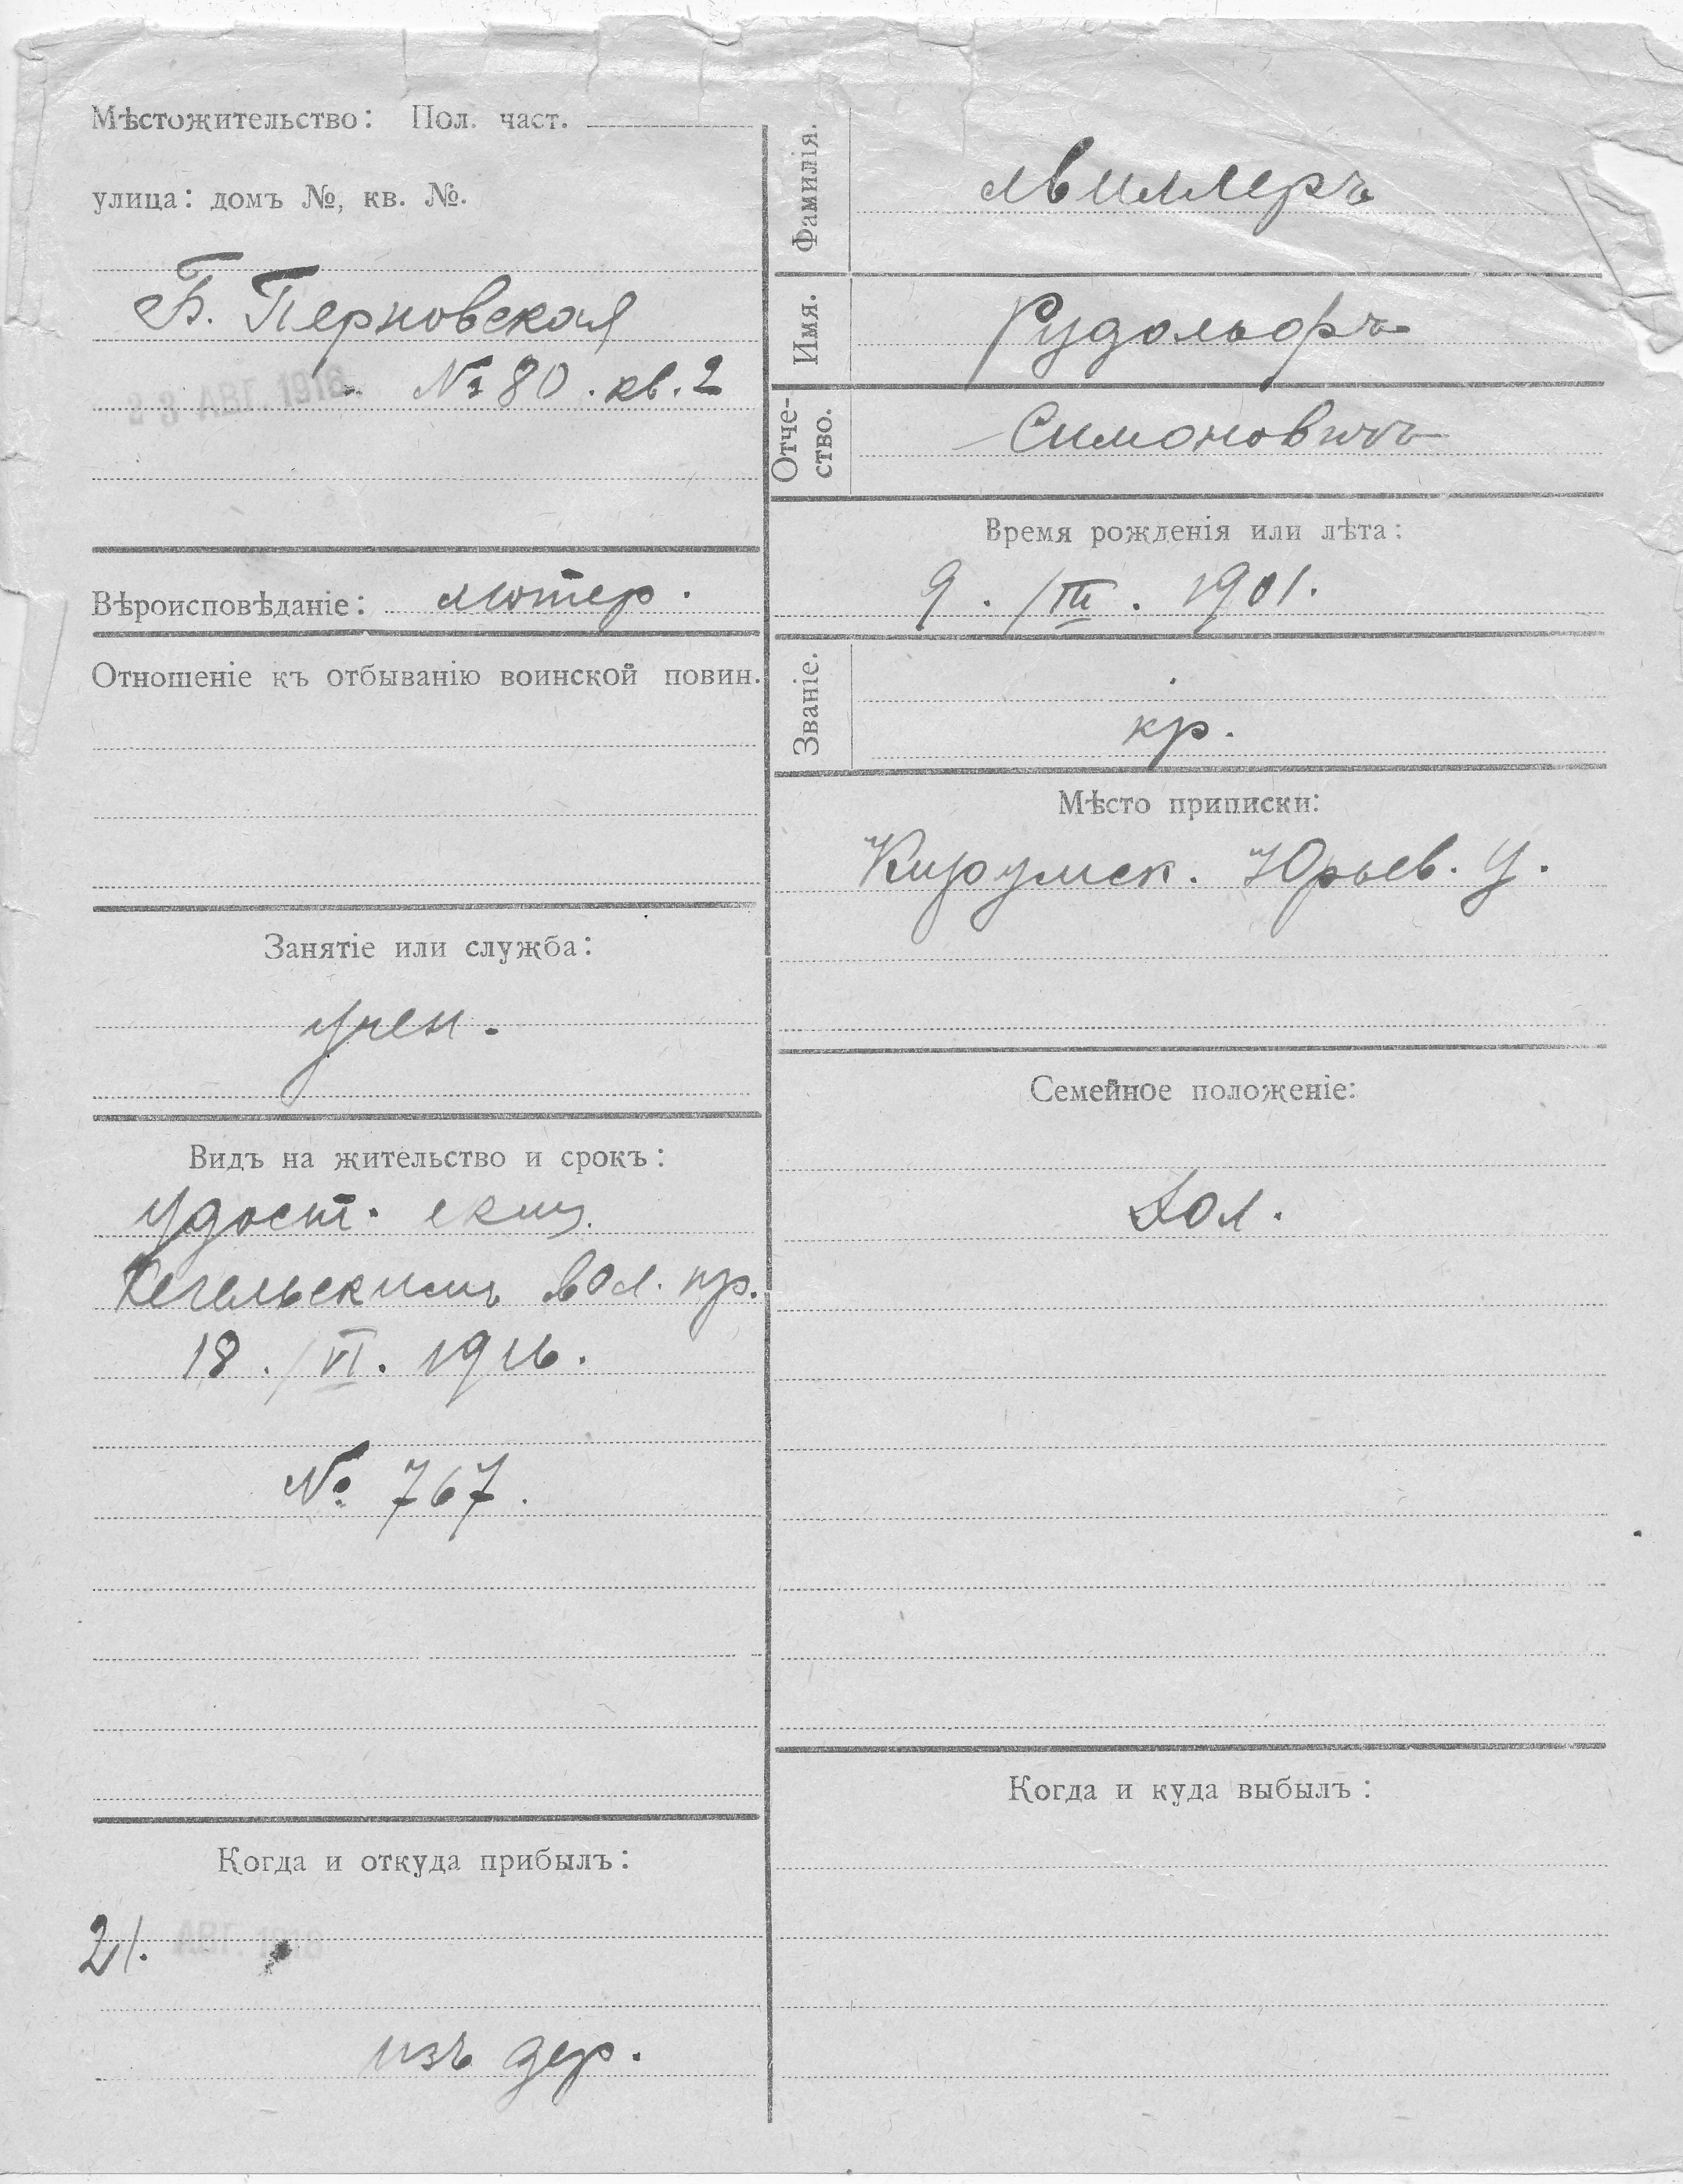 Мѣстожительство: Пол. част.
улица: домъ №, кв. №.
Б. Перновская
№ 80. кв. 2
23 АВГ. 1916
Вѣроисповѣданіе: лютер.
Отношеніе къ отбыванію воинской повин.
Занятіе или служба:
учен.
Видъ на жительство и срокъ:
удост.
вол. пр.
18./VI. 1916.
№ 767.
Когда и откуда прибылъ:
21. АВГ. 1916
изъ дер.
Фамилія.
Имя. Рудольфъ
Отче-
ство. Симоновичъ
Время рожденія или лѣта:
9./III. 1901.
Званіе.
кр.
Мѣсто приписки:
Кирумск. Юрьев. у.
Семейное положеніе:
хол.
Когда и куда выбылъ: